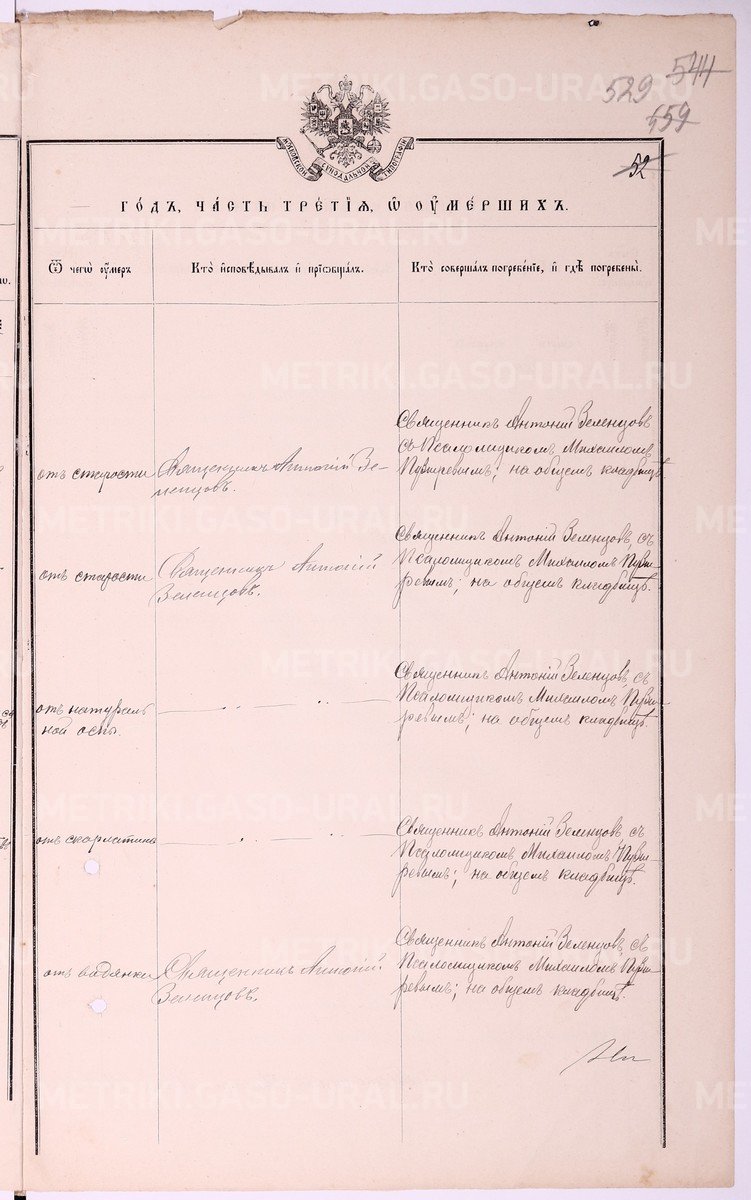 544
529
559
52
МОСКОВСКОЙ СѴНОДАЛЬНОЙ ТИПОГРАФІИ
ГО́ДЪ, ЧА́СТЬ ТРЕ́ТІѦ, Ѡ҆ ОУ҆МЕ́РШИХЪ.
Ѿ чегѡ̀ оу҆́меръ
Кто̀ и҆сповѣ́дывалъ и҆ прїѡбща́лъ.
Кто̀ соверша́лъ погребе́нїе, и҆ гдѣ̀ погребены̀.
отъ старости
Священникъ Антоній Зе-
ленцовъ.
Священникъ Антоній Зеленцовъ
съ Псаломщикомъ Михаиломъ
Пузыревымъ; на общемъ кладбищѣ.
отъ старости
Священникъ Антоній
Зеленцовъ.
Священникъ Антоній Зеленцовъ съ
Псаломщикомъ Михаиломъ Пузы-
ревымъ; на общемъ кладбищѣ.
отъ натураль
ной оспы.
Священникъ Антоній Зеленцовъ съ
Псаломщикомъ Михаиломъ Пузы-
ревымъ; на общемъ кладбищѣ.
отъ скарлатины
Священникъ Антоній Зеленцовъ съ
Псаломщикомъ Михаиломъ Пузы-
ревымъ; на общемъ кладбищѣ.
отъ водянки
Священникъ Антоній
Зеленцовъ.
Священникъ Антоній Зеленцовъ съ
Псаломщикомъ Михаиломъ Пузы-
ревымъ; на общемъ кладбищѣ.
METRIKI.GASO-URAL.RU
METRIKI.GASO-URAL.RU
METRIKI.GASO-URAL.RU
METRIKI.GASO-URAL.RU
METRIKI.GASO-URAL.RU
METRIKI.GASO-URAL.RU
METRIKI.GASO-URAL.RU
METRIKI.GASO-URAL.RU